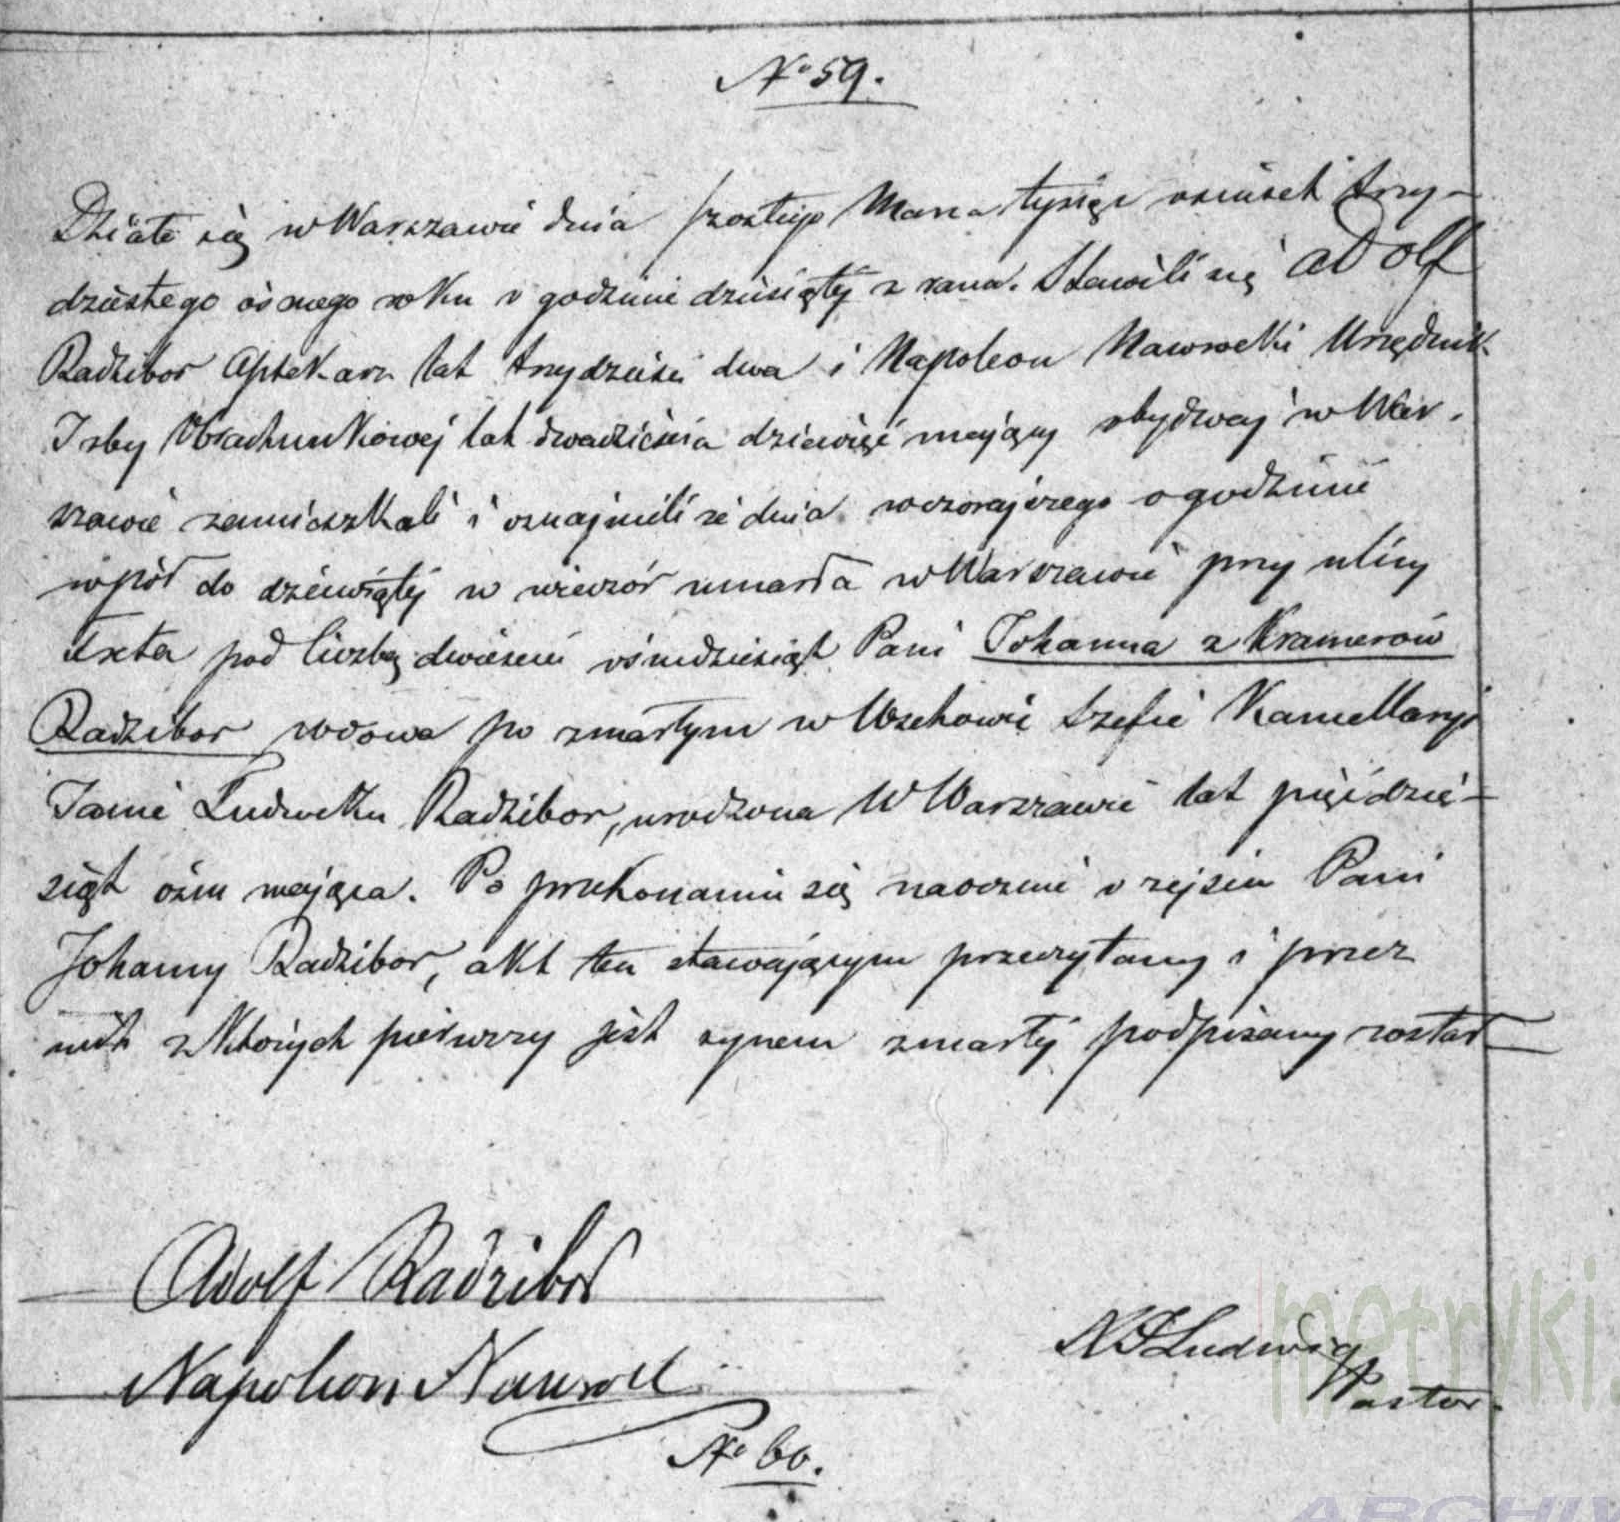 No 59.
Działo się w Warszawie dnia szostego Marca tysiąc osiuset trzy-
dziestego ośmego roku o godzinie dziesiątej z rana. Stawili się Adolf
Radzibor Aptekarz lat trzydzieści dwa i Napoleon Nawrocki Urzędnik
Izby Obrachunkowej lat dwadzieścia dziewięć mający obydwaj w War-
szawie zamieszkali i oznajmili że dnia wczorajszego o godzinie
wpół do dziewiątej w wieczór umarła w Warszawie przy ulicy
Freta pod liczbą dwieście ośmdziesiąt Pani Johanna z Kramerów
Radzibor wdowa po zmarłym w Wschowie Szefie Kancellaryi
Janie Ludwiku Radzibor, urodzona w Warszawie lat pięćdzie-
siąt ośm mająca. Po przekonaniu się naocznie o zejściu Pani
Johanny Radzibor, akt ten stawającym przeczytany i przez
nich z których pierwszy jest synem zmarłej podpisany został
Adolf Radzibor
Napoleon Nawrocki
Ludwig
Pastor.
No 60.
metryki.
ARCHIW